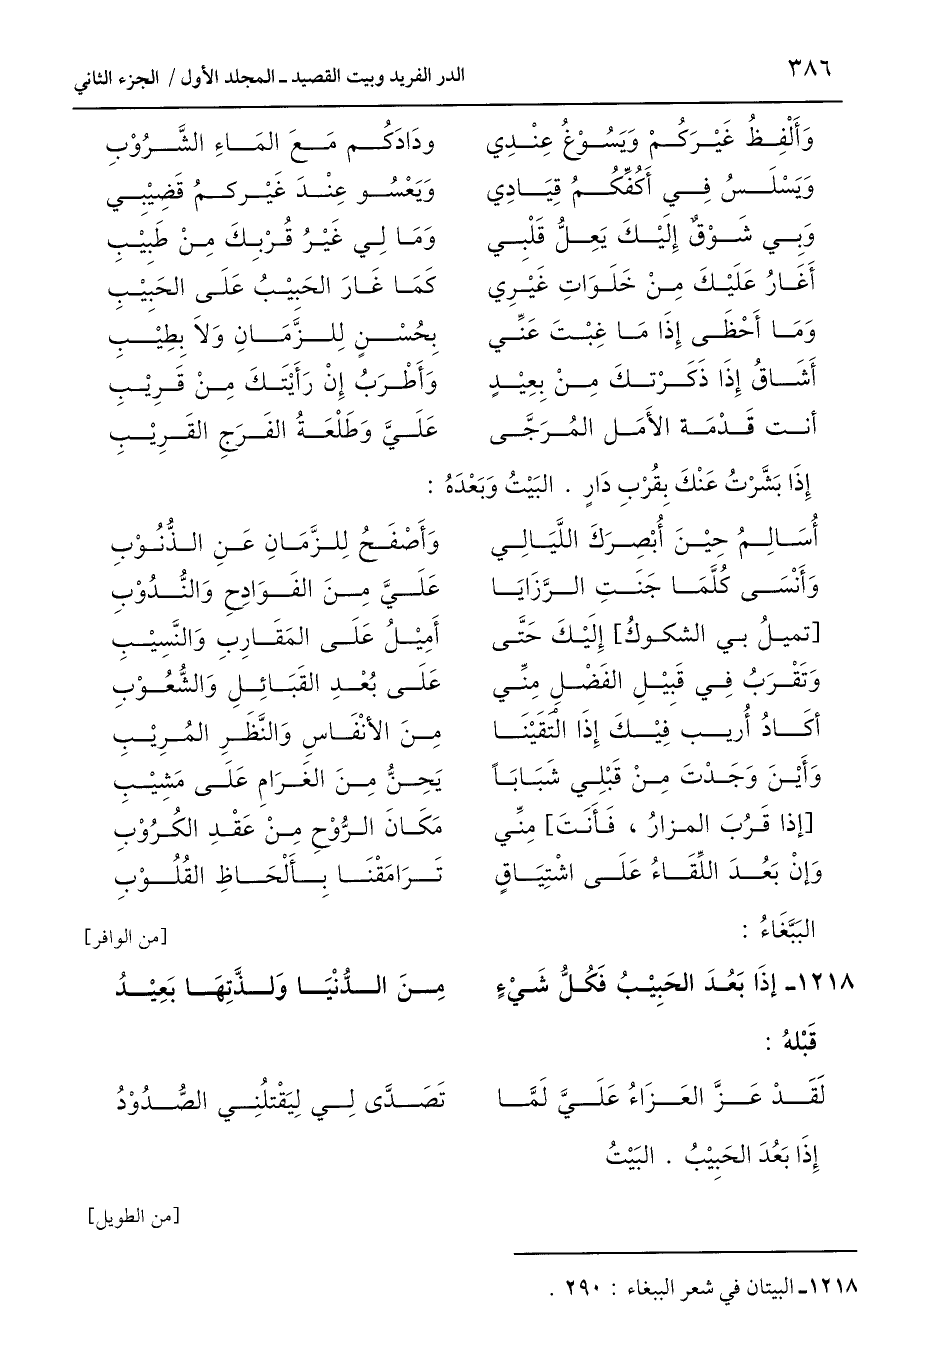 ٣٨٦ الدر الفريد وبيت القصيد ـ المجلد الأول / الجزء الثاني
وَأَلْفِظُ غَيْرَكُمْ وَيَسُوْغُ عِنْدِي وِدَادَكُم مَعَ المَاءِ الشَّرُوْبِ
وَيَسْلَسُ فِي أَكُفِّكُمُ قِيَادِي وَيَعْسُو عِنْدَ غَيْرِكُمُ قَضِيْبِي
وَبِي شَوْقٌ إِلَيْكَ يَعِلُّ قَلْبِي وَمَا لِي غَيْرُ قُرْبِكَ مِنْ طَبِيْبِ
أَغَارُ عَلَيْكَ مِنْ خَلَوَاتِ غَيْرِي كَمَا غَارَ الحَبِيْبُ عَلَى الحَبِيْبِ
وَمَا أَحْظَى إِذَا مَا غِبْتَ عَنِّي بِحُسْنٍ لِلزَّمَانِ وَلاَ بِطِيْبِ
أَشَاقُ إِذَا ذَكَرْتُكَ مِنْ بَعِيْدٍ وَأَطْرَبُ إِنْ رَأَيْتُكَ مِنْ قَرِيْبِ
أَنت قَدْمَة الأَمَلِ المُرَجَّى عَلَيَّ وَطَلْعَةُ الفَرَجِ القَرِيْبِ
إِذَا بَشَّرْتُ عَنْكَ بِقُرْبِ دَارٍ . البَيْتُ وَبَعْدَهُ :
أُسَالِمُ حِيْنَ أُبْصِرُكَ اللَّيَالِي وَأَصْفَحُ لِلزَّمَانِ عَنِ الذُّنُوْبِ
وَأَنْسَى كُلَّمَا جَنَتِ الرَّزَايَا عَلَيَّ مِنَ الفَوَادِحِ وَالنُّدُوْبِ
[تميلُ بي الشكوكُ] إِلَيْكَ حَتَّى أَمِيْلُ عَلَى المَقَارِبِ وَالنَّسِيْبِ
وَتَقْرَبُ فِي قَبِيْلِ الفَضْلِ مِنِّي عَلَى بُعْدِ القَبَائِلِ وَالشُّعُوْبِ
أكَادُ أُرِيبُ فِيْكَ إِذَا الْتَقَيْنَا مِنَ الأَنْفَاسِ وَالنَّظَرِ المُرِيْبِ
وَأَيْنَ وَجَدْتَ مِنْ قَبْلِي شَبَابَاً يَحِنُّ مِنَ الغَرَامِ عَلَى مَشِيْبِ
[إذا قَرُبَ المزارُ ، فَأَنتَ] مِنِّي مَكَانَ الرُّوْحِ مِنْ عَقْدِ الكَرُوْبِ
وَإِنْ بَعُدَ اللِّقَاءُ عَلَى اشْتِيَاقٍ تَرَامَقْنَا بِأَلْحَاظِ القُلُوْبِ
البَبَّغَاءُ : [من الوافر]
١٢١٨ـ إِذَا بَعُدَ الحَبِيْبُ فَكُلُّ شَيْءٍ مِنَ الدُّنْيَا وَلَذَّتِهَا بَعِيْدُ
قَبْلَهُ :
لَقَدْ عَزَّ العَزَاءُ عَلَيَّ لَمَّا تَصَدَّى لِي لِيَقْتُلَنِي الصُّدُوْدُ
إِذَا بَعُدَ الحَبِيْبُ . البَيْتُ
[من الطويل]
١٢١٨ـ البيتان في شعر الببغاء : ٢٩٠ .